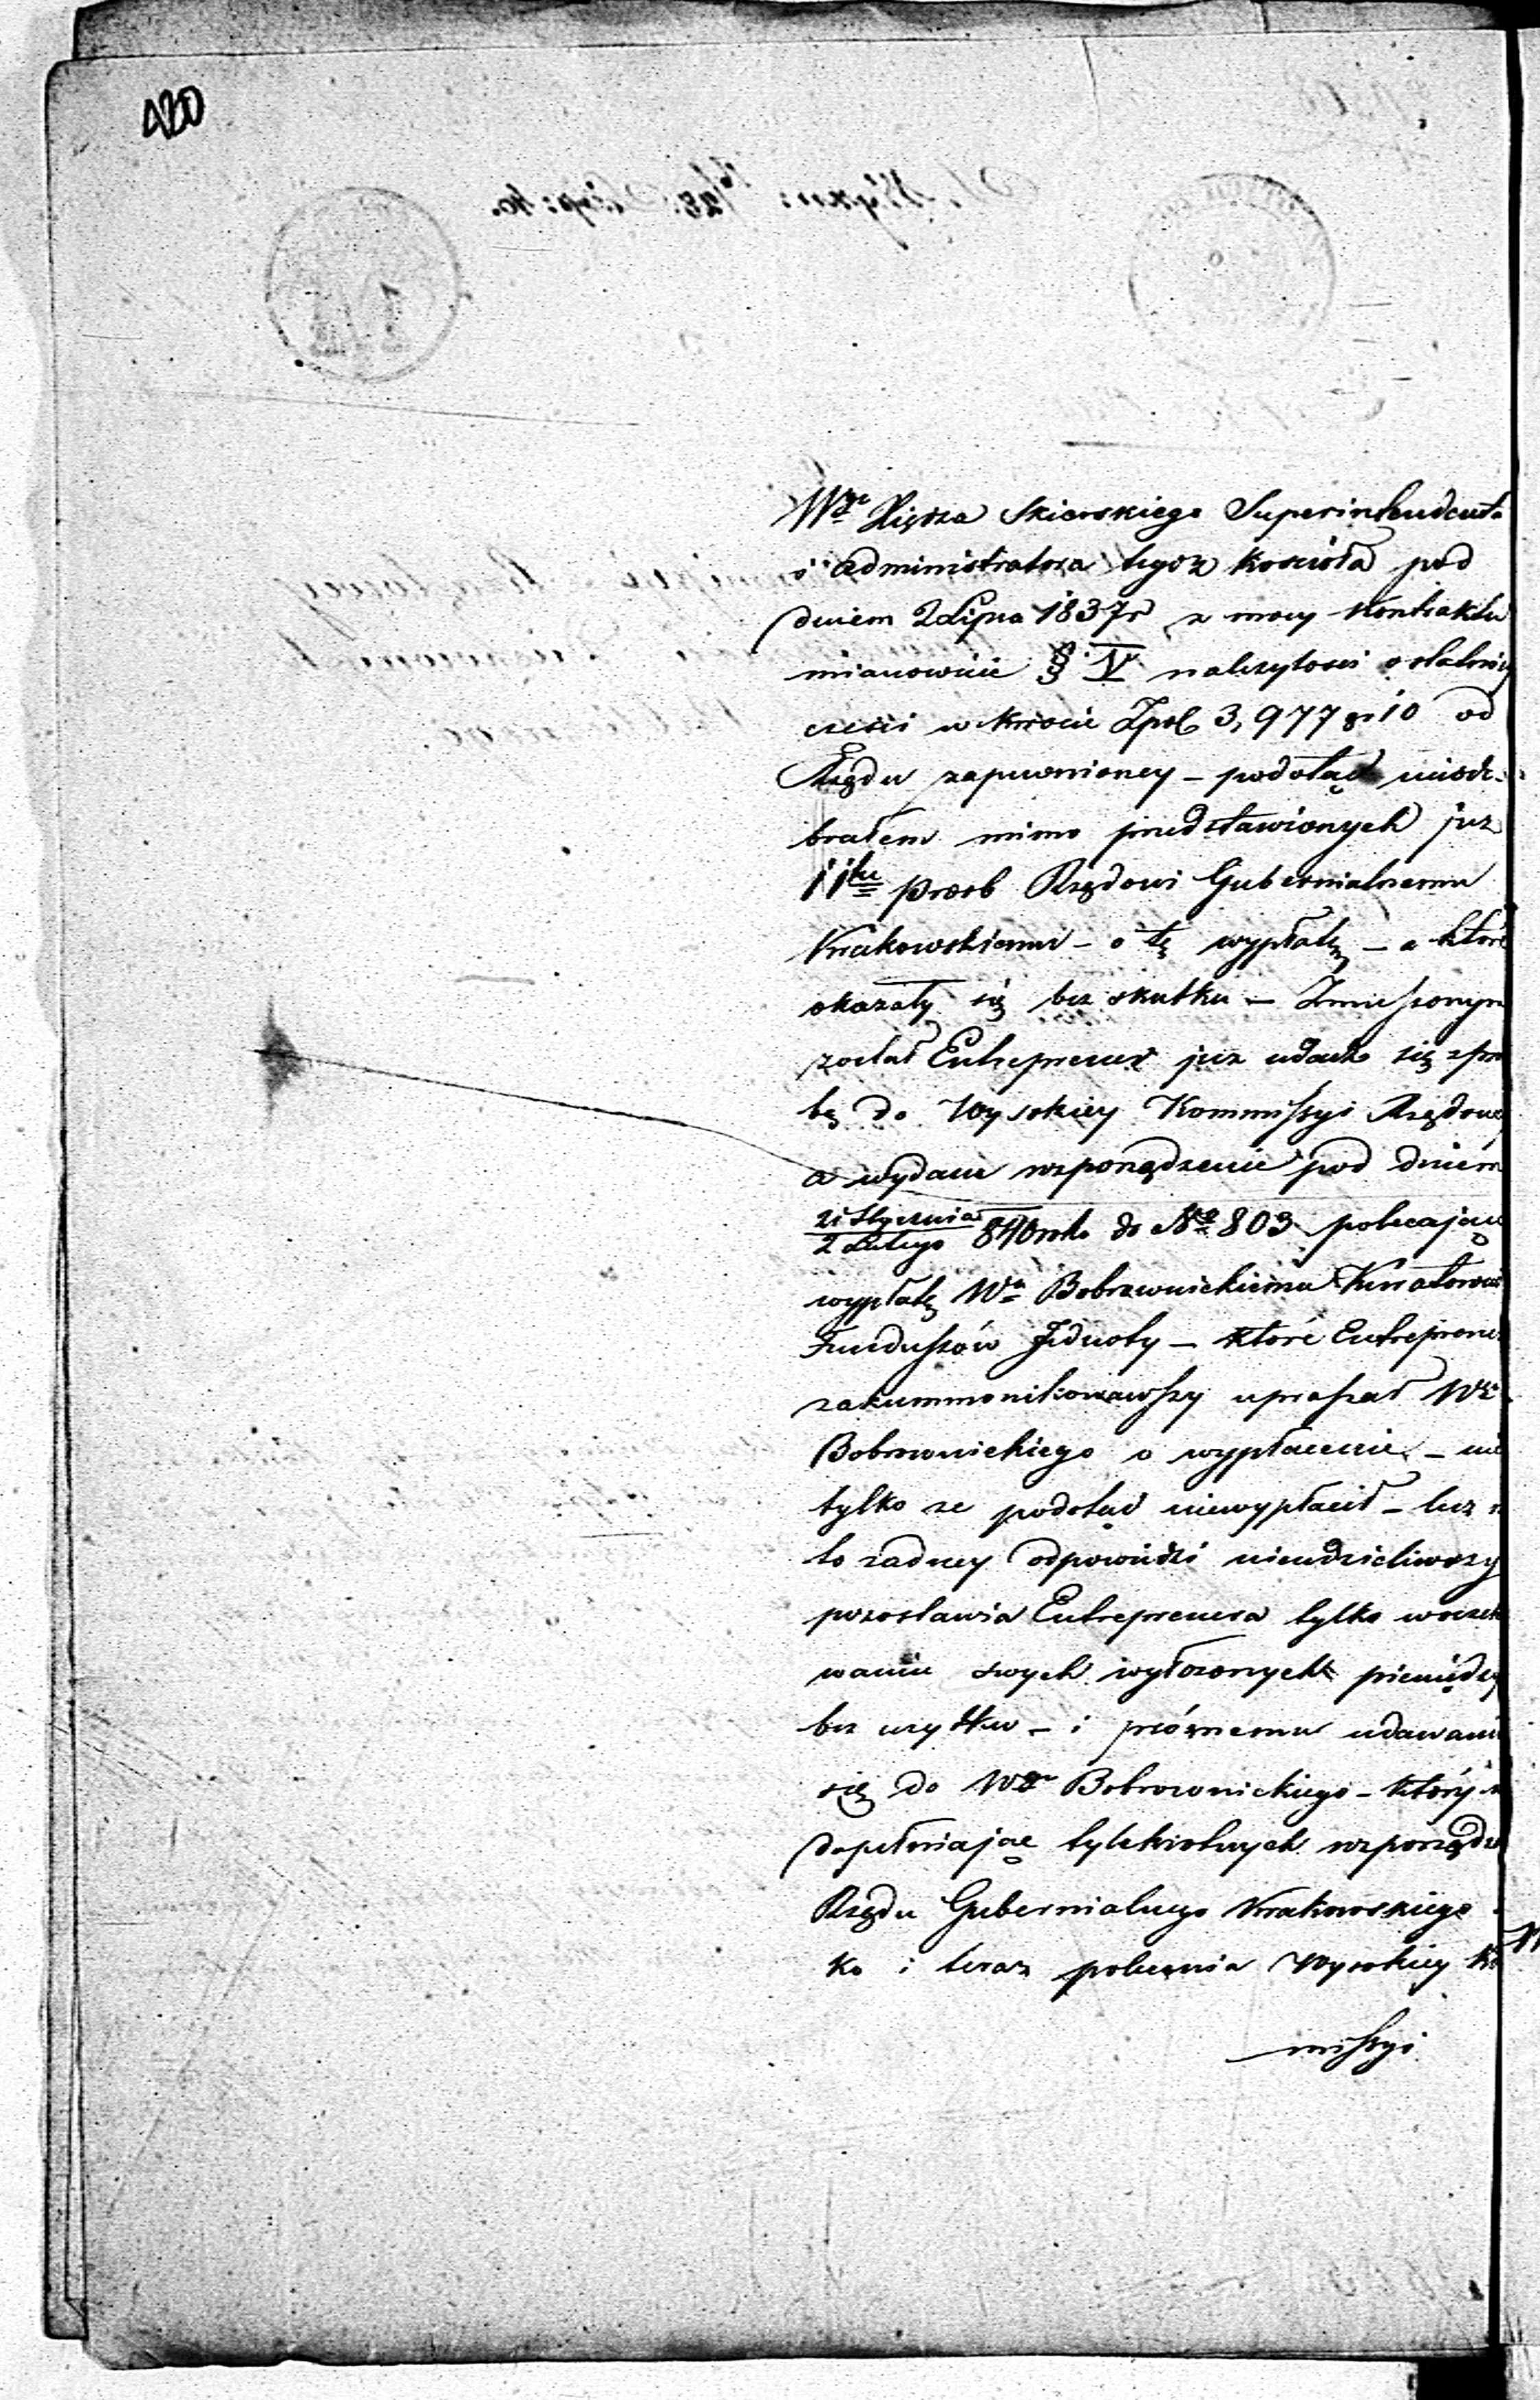 420
Wgo Xiędza Skierskiego Superintendenta
i administratora tegoż kościoła pod
dniem 2 Lipca 1837r z mocy Kontraktu
mianowicie § V należytości ostatniey
części w kwocie Zpol 3,977 gr 10 od
Rządu zapewnioney – podotąd nieode-
brałem mimo przedstawionych już
11tu prosb Rządowi Gubernialnemu
Krakowskiemu – o tę wypłatę – a które
okazały się bez skutku – Zmuszonym
został Entreprener już udać się z proś
bą do Wysokiey Kommissyi Rządowey
a wydane rozporządzenie pod dniem
21 Stycznia
2 Lutego 840 roku do No 803 polecające
wypłatę Wu Bobrownickiemu Kuratorowi
Funduszów Jednoty – które Entreprener
zakummonikowawszy upraszał WP
Bobrownickiego o wypłacenie – nie
tylko ze podotąd niewypłacił – lecz n
to zadney odpowiedzi nieudzieliwszy
pozostawia Entreprenera tylko w oczeki
waniu swych wyłozonych pieniędzy
bez uzytku – i próżnemu udawaniu
się do Wgo Bobrownickiego – który n
dopełniając tylekrotnych rozporządze
Rządu Gubernialnego Krakowskiego
ko i teraz polecenia Wysokiey Ko
missyi